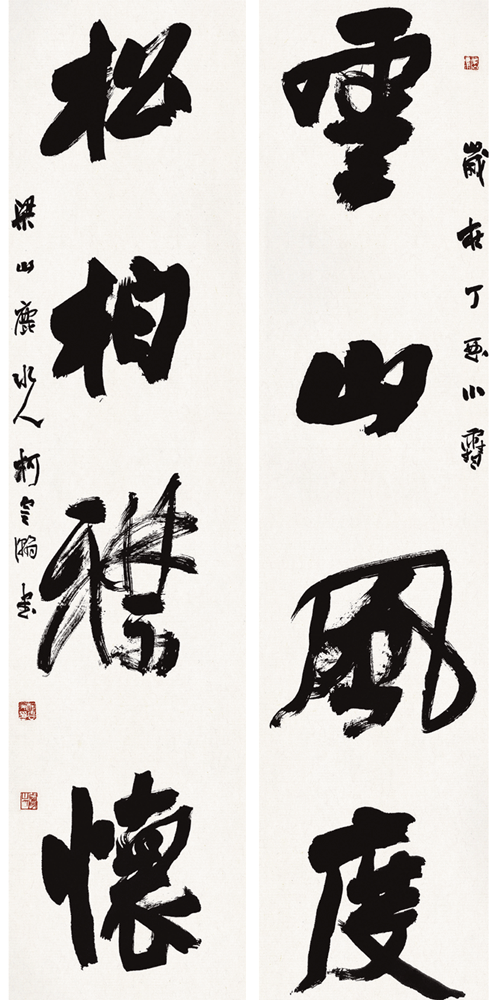 歲在丁酉小雪
雲山風度
松柏襟懷
梁山鹿水人柯云瀚书